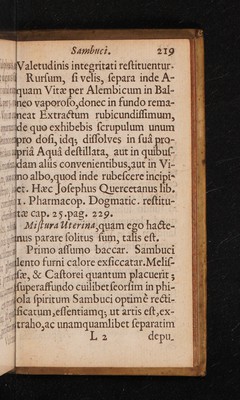 Sambuci. 219
Valetudinis integritati restituentur.
Rursum, si velis, separa inde A-
quam Vitæ per Alembicum in Bal-
neo vaporoso, donec in fundo rema-
neat Extractum rubicundissimum,
de quo exhibebis scrupulum unum
pro dosi, idq; dissolves in suâ pro-
priâ Aquâ destillata, aut in quibus-
dam aliis convenientibus, aut in Vi-
no albo, quod inde rubescere incipi-
et. Hæc Josephus Quercetanus lib.
1. Pharmacop. Dogmatic. restitu-
tæ cap. 25. pag. 229.
Mistura Uterina, quam ego hacte-
nus parare solitus sum, talis est.
Primo assumo baccar. Sambuci
lento furni calore exsiccatar. Melis-
sæ, & Castorei quantum placuerit;
superaffundo cuilibet seorsim in phi-
ola spiritum Sambuci optimè recti-
ficatum, essentiamq; ut artis est, ex-
traho, ac unamquamlibet separatim
L 2 depu-